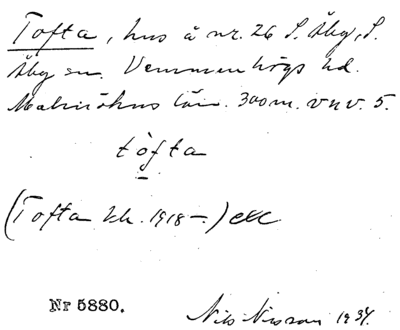 Tofta, hus å nr. 26 S. Åby, S.
Åby sn. Vemmenhögs hd.
Malmöhus län. 300 m. v n v. 5.
tòfta
(Tofta kk. 1918–.) etc
Nr 5880.
Nils Nilsson 1934.